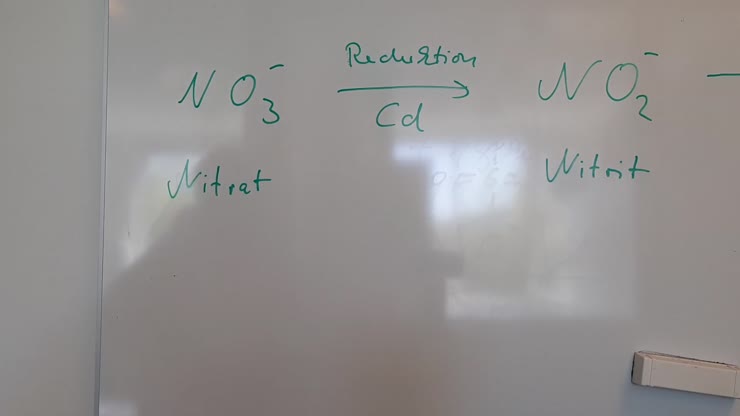 NO₃⁻ Reduktion Cd NO₂⁻
Nitrat Nitrit